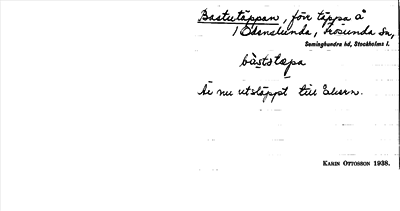 Bastutäppan, förr täppa å
1 Odenslunda, Frösunda sn,
Seminghundra hd, Stockholms l.
bàststæpa
är nu utsläppt till
Karin Ottosson 1938.